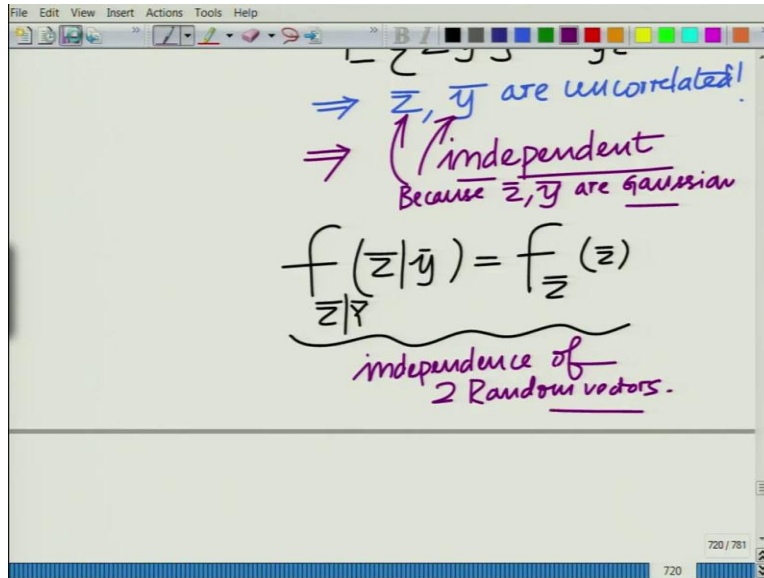 File Edit View Insert Actions Tools Help
B I
⇒ z̅, y̅ are uncorrelated!
⇒ independent
Because z̅, y̅ are Gaussian
f_{Z̅|Y̅} (z̅|y̅) = f_{Z̅} (z̅)
independence of
2 Random vectors.
720 / 781
720